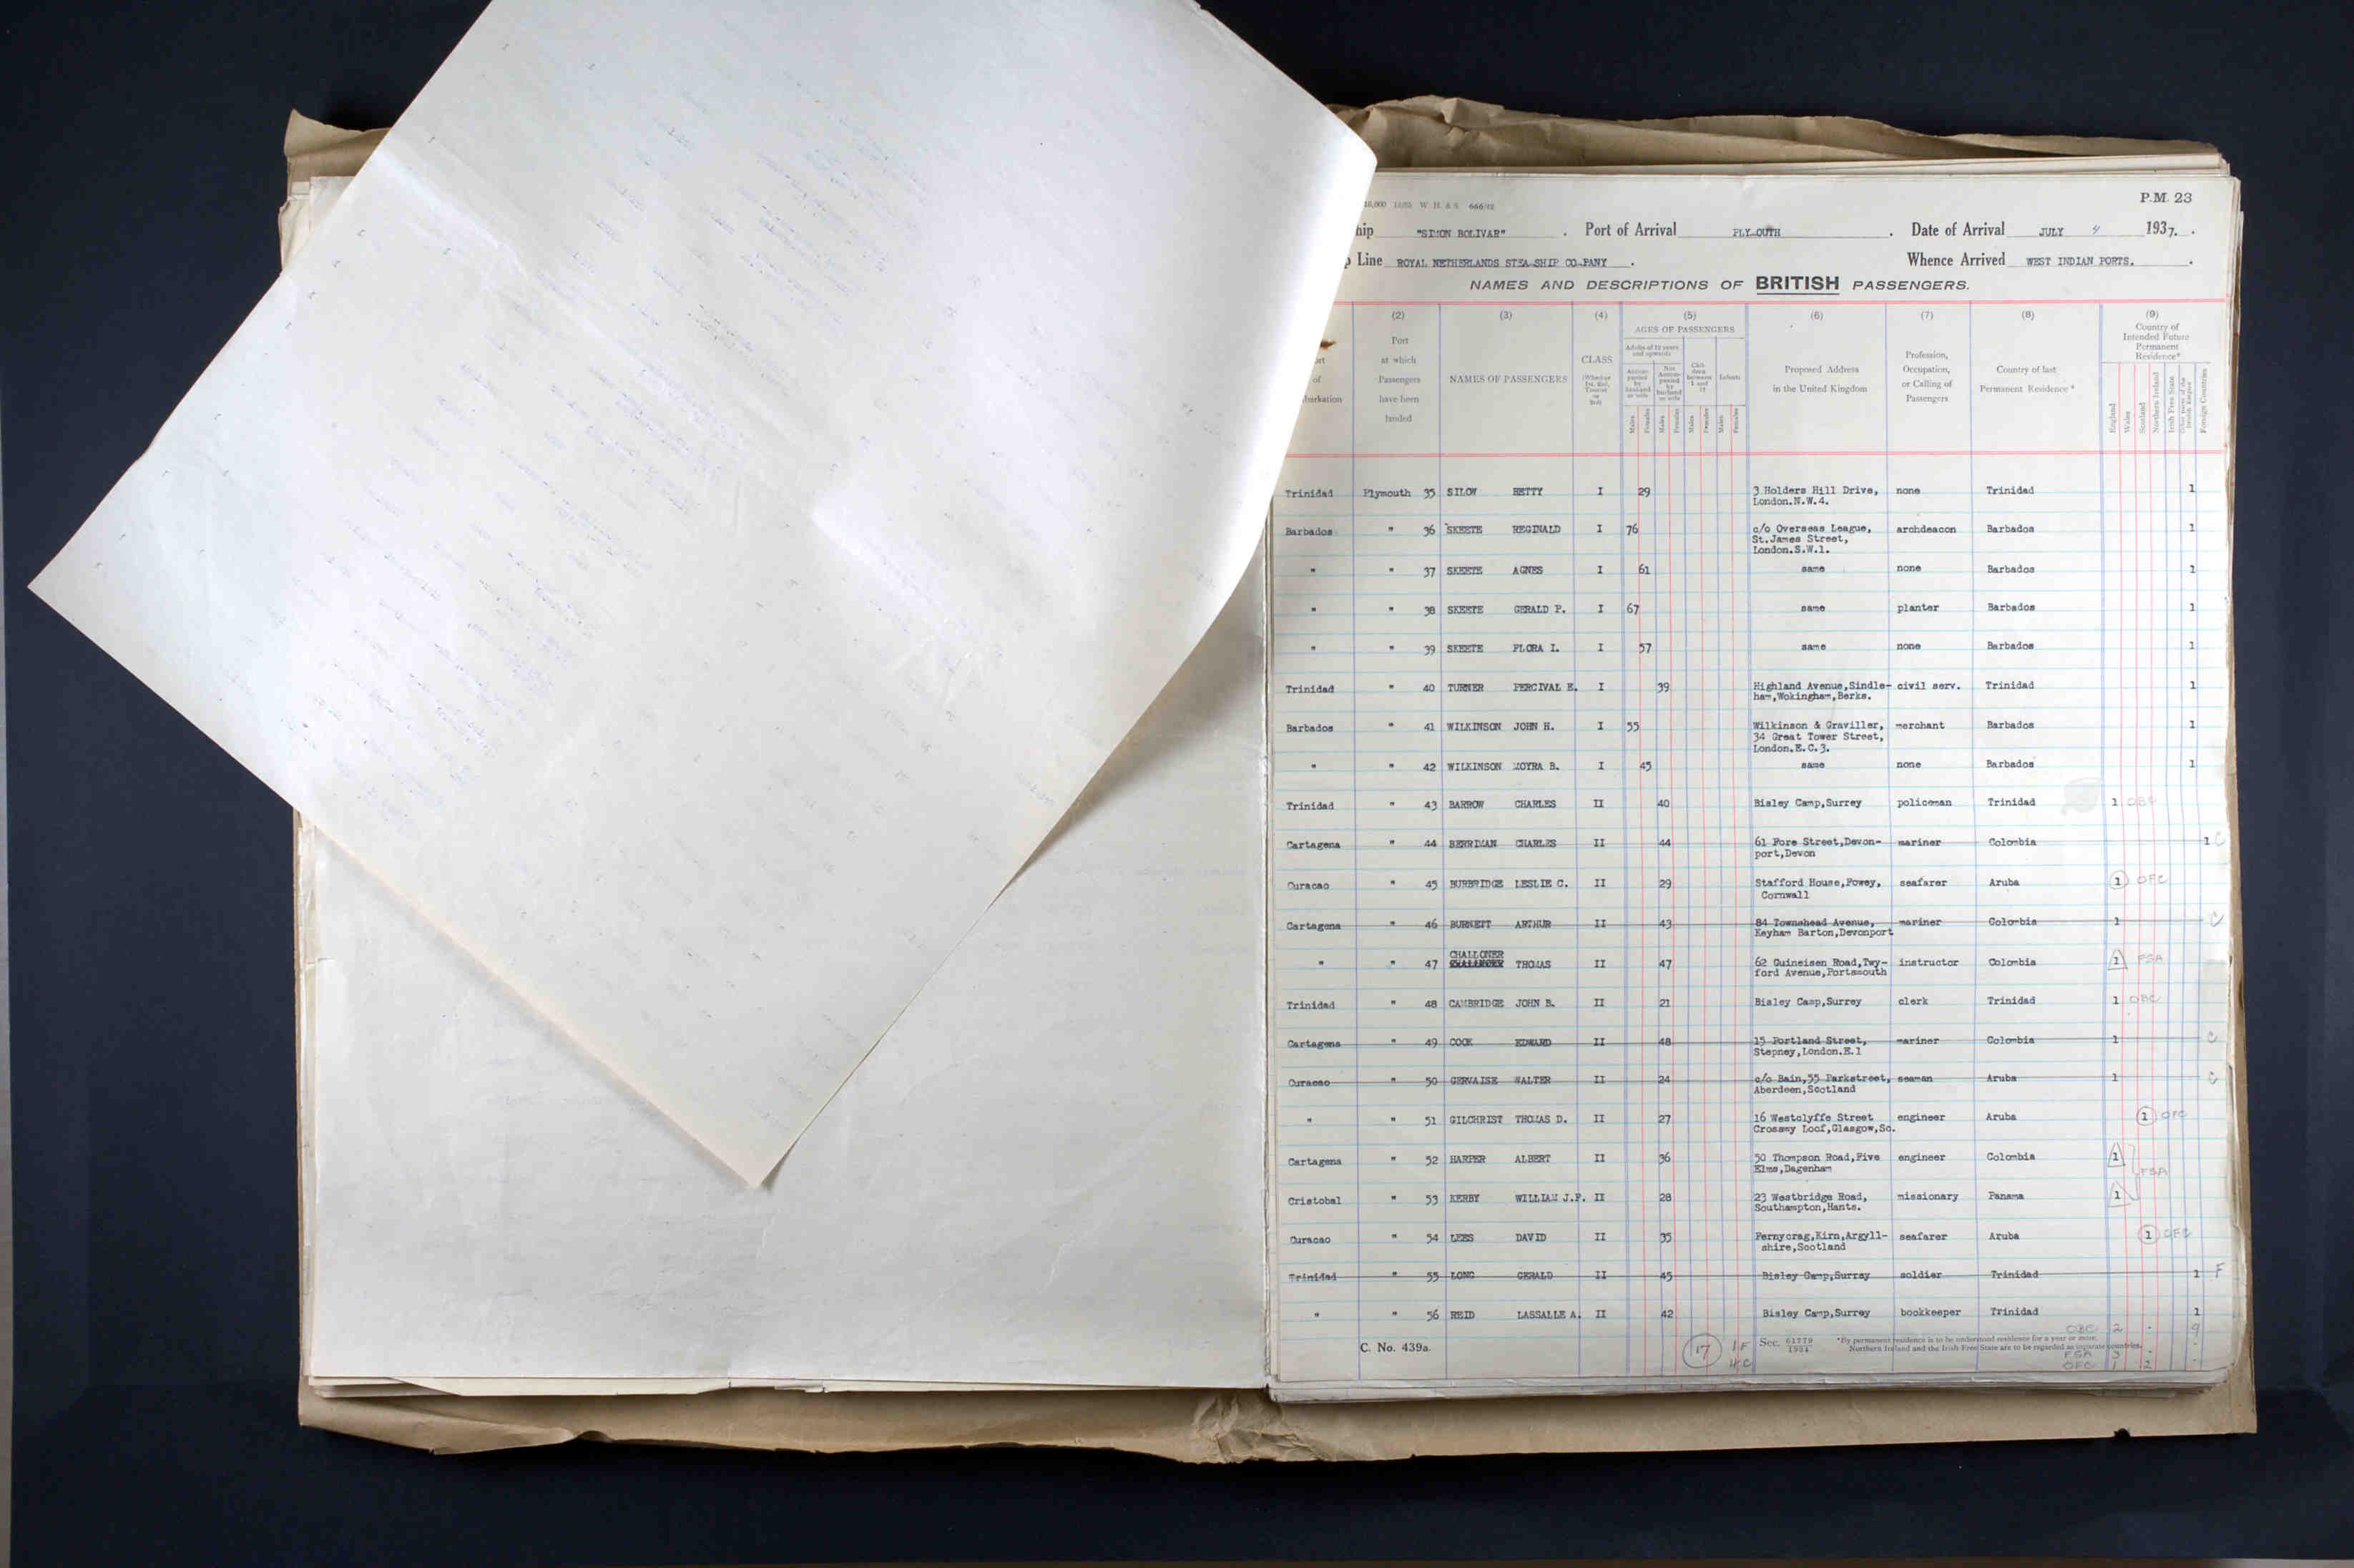 P.M. 23
W. H. & S. 666/82
hip "SIMON BOLIVAR" . Port of Arrival PLYMOUTH . Date of Arrival JULY 4 1937. .
p Line ROYAL NETHERLANDS STEAMSHIP COMPANY . Whence Arrived WEST INDIAN PORTS. .
NAMES AND DESCRIPTIONS OF BRITISH PASSENGERS.
(2) (3) (4) (5) (6) (7) (8) (9)
Port at which Passengers have been landed
NAMES OF PASSENGERS
CLASS
AGES OF PASSENGERS
Adults of 12 years and upwards
Infants
Males Females Males Females Males Females Males Females
Proposed Address in the United Kingdom
Profession, Occupation, or Calling of Passengers
Country of last Permanent Residence*
Country of Intended Future Permanent Residence*
England Wales Scotland Northern Ireland Irish Free State Foreign Countries
Trinidad Plymouth 35 SILOW HETTY I 29 3 Holders Hill Drive, none Trinidad 1
London.N.W.4.
Barbados " 36 SKEETE REGINALD I 76 c/o Overseas League, archdeacon Barbados 1
St.James Street,
London.S.W.1.
" " 37 SKEETE AGNES I 61 same none Barbados 1
" " 38 SKEETE GERALD P. I 67 same planter Barbados 1
" " 39 SKEETE FLORA I. I 57 same none Barbados 1
Trinidad " 40 TURNER PERCIVAL E. I 39 Highland Avenue,Sindle- civil serv. Trinidad 1
ham,Wokingham,Berks.
Barbados " 41 WILKINSON JOHN H. I 55 Wilkinson & Graviller, merchant Barbados 1
34 Great Tower Street,
London.E.C.3.
" " 42 WILKINSON MOYRA B. I 45 same none Barbados 1
Trinidad " 43 BARROW CHARLES II 40 Bisley Camp,Surrey policeman Trinidad 1 OBC
Cartagena " 44 BERRIMAN CHARLES II 44 61 Fore Street,Devon- mariner Colombia 1 C
port,Devon
Curacao " 45 BURBRIDGE LESLIE C. II 29 Stafford House,Fowey, seafarer Aruba 1 OFC
Cornwall
Cartagena " 46 BURNETT ARTHUR II 43 84 Townshead Avenue, mariner Colombia 1 C
Keyham Barton,Devonport
CHALLONER
" " 47 THOMAS II 47 62 Guineisen Road,Twy- instructor Colombia 1 FSA
ford Avenue,Portsmouth
Trinidad " 48 CAMBRIDGE JOHN B. II 21 Bisley Camp,Surrey clerk Trinidad 1 OBC
Cartagena " 49 COOK EDWARD II 48 15 Portland Street, mariner Colombia 1 C
Stepney,London.E.1
Curacao " 50 GERVAISE WALTER II 24 c/o Bain,55 Parkstreet, seaman Aruba 1 C
Aberdeen,Scotland
" " 51 GILCHRIST THOMAS D. II 27 16 Westclyffe Street engineer Aruba 1 OFC
Crossmy Loof,Glasgow,Sc.
Cartagena " 52 HARPER ALBERT II 36 50 Thompson Road,Five engineer Colombia 1
Elms,Dagenham FSA
Cristobal " 53 KERBY WILLIAM J.F. II 28 23 Westbridge Road, missionary Panama 1
Southampton,Hants.
Curacao " 54 LEES DAVID II 35 Fernycrag,Kirn,Argyll- seafarer Aruba 1 OFC
shire,Scotland
Trinidad " 55 LONG GERALD II 45 Bisley Camp,Surrey soldier Trinidad 1 F
" " 56 REID LASSALLE A. II 42 Bisley Camp,Surrey bookkeeper Trinidad 1
OBC 2 9
C. No. 439a. 17 1F 4C Sec. 61779/1934 *By permanent residence is to be understood residence for a year or more.
Northern Ireland and the Irish Free State are to be regarded as separate countries.
FSA 3
OFC 1 2